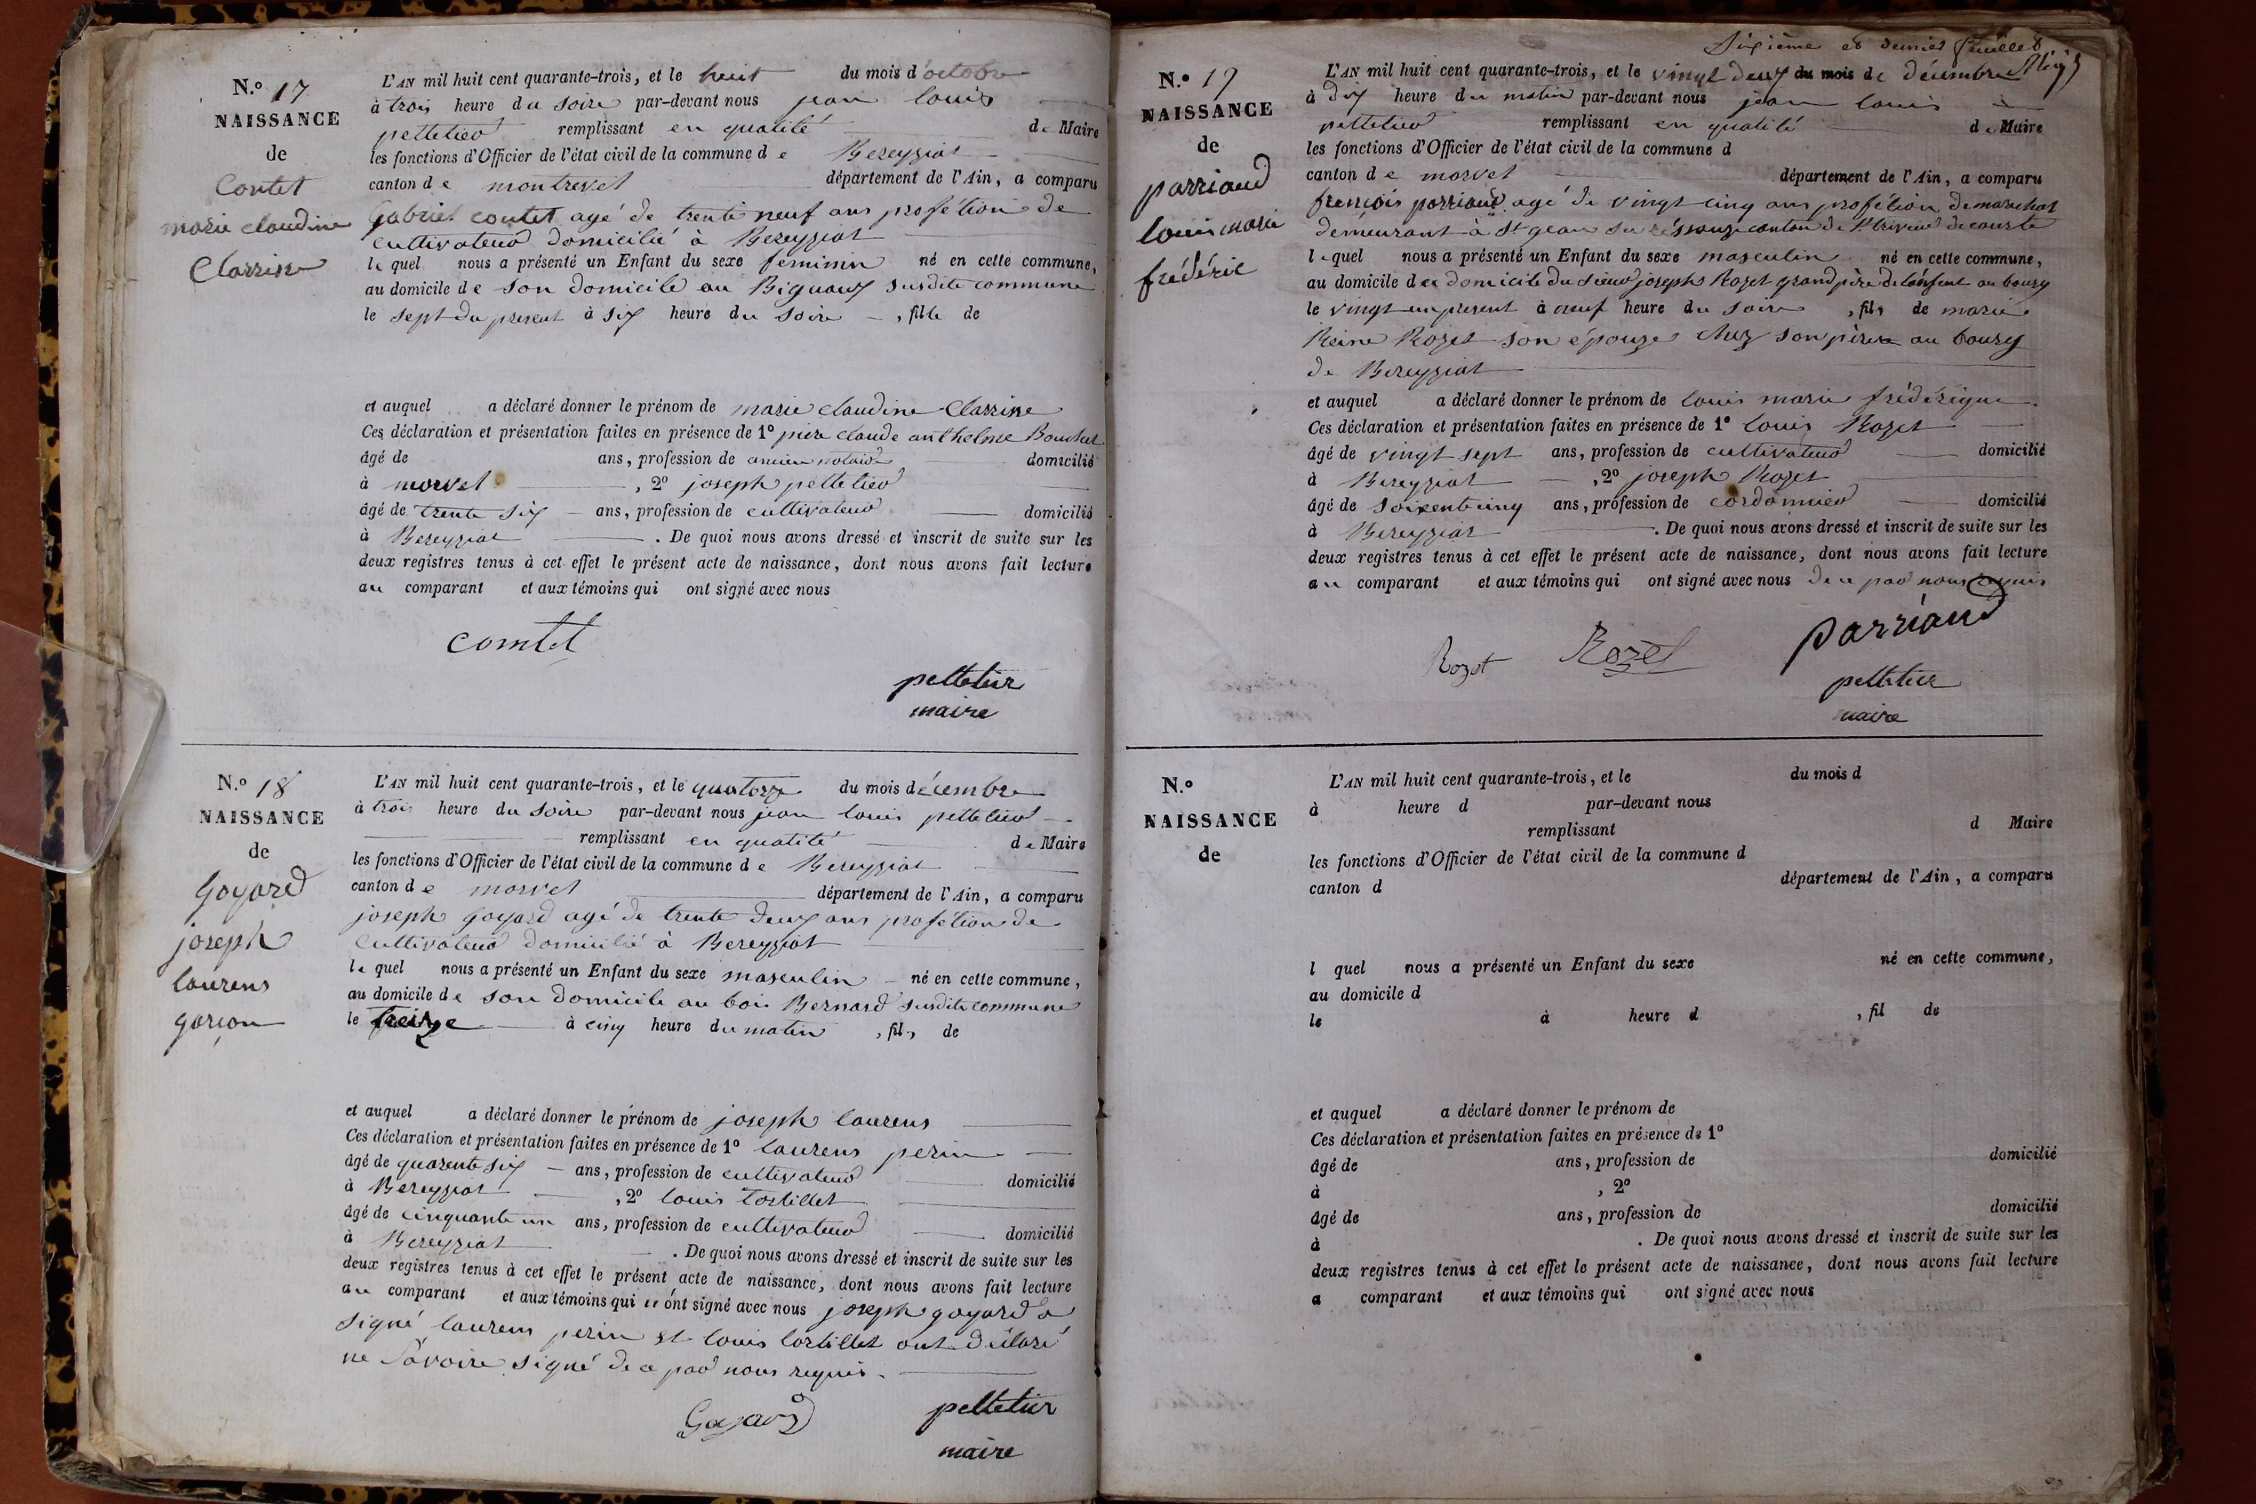 N.º 17
NAISSANCE
de
Contet
marie claudine
Clarrisse
L'AN mil huit cent quarante-trois, et le huit du mois d'octobre
à trois heure du soire par-devant nous jean louis
pelletier remplissant en qualité de Maire
les fonctions d'Officier de l'état civil de la commune de Bereyziat
canton de montrevel département de l'Ain, a comparu
Gabriel contet agé de trente neuf ans profétion de
cultivateur domicilié à Bereyziat
le quel nous a présenté un Enfant du sexe feminin né en cette commune,
au domicile de son domicile au Biguaux susdite commune
le sept du present à six heure du soire , fille de
et auquel a déclaré donner le prénom de marie claudine Clarrisse
Ces déclaration et présentation faites en présence de 1º piere claude anthelme Bouchet
âgé de ans, profession de ancien notaire domicilié
à morvel , 2º joseph pelletier
âgé de trente six ans, profession de cultivateur domicilié
à Bereyziat . De quoi nous avons dressé et inscrit de suite sur les
deux registres tenus à cet effet le présent acte de naissance, dont nous avons fait lecture
au comparant et aux témoins qui ont signé avec nous
comtet
pelletier
maire
N.º 18
NAISSANCE
de
Goyard
joseph
laurens
garçon
L'AN mil huit cent quarante-trois, et le quatorze du mois décembre
à trois heure du soire par-devant nous jean louis pelletier
remplissant en qualité de Maire
les fonctions d'Officier de l'état civil de la commune de Bereyziat
canton de morvel département de l'Ain, a comparu
joseph Goyard agé de trente deux ans profétion de
cultivateur domicilié à Bereyziat
le quel nous a présenté un Enfant du sexe masculin né en cette commune,
au domicile de son domicile au bois Bernard susdite commune
le treize à cinq heure du matin , fils de
et auquel a déclaré donner le prénom de joseph laurens
Ces déclaration et présentation faites en présence de 1º laurens perin
âgé de quarente six ans, profession de cultivateur domicilié
à Bereyziat , 2º louis tortillet
âgé de cinquante un ans, profession de cultivateur domicilié
à Bereyziat . De quoi nous avons dressé et inscrit de suite sur les
deux registres tenus à cet effet le présent acte de naissance, dont nous avons fait lecture
au comparant et aux témoins qui ont signé avec nous joseph goyard a
signé laurens perin et louis tortillet ont déclaré
ne savoire signé de ce par nous requis.
Goyard
pelletier
maire
Sixième et dernier feuillet
N.º 19
NAISSANCE
de
parriaud
louis marie
frédéric
L'AN mil huit cent quarante-trois, et le vingt deux du mois de décembre
à dix heure du matin par-devant nous jean louis
pelletier remplissant en qualité de Maire
les fonctions d'Officier de l'état civil de la commune d
canton de morvel département de l'Ain, a comparu
francois parriaud agé de vingt cinq ans profétion de marechal
demeurant à St jean su réssouze canton de St trivier de courte
le quel nous a présenté un Enfant du sexe masculin né en cette commune,
au domicile de ce domicile du sieur joseph Rozet grand père de l'enfant au bourg
le vingt un present à neuf heure du soire , fils de marie
Reine Rozet son épouze chez son père au bourg
de Bereyziat
et auquel a déclaré donner le prénom de louis marie frédérique
Ces déclaration et présentation faites en présence de 1º louis Rozet
âgé de vingt sept ans, profession de cultivateur domicilié
à Bereyziat , 2º joseph Rozet
âgé de soixente cinq ans, profession de cordonnier domicilié
à Bereyziat . De quoi nous avons dressé et inscrit de suite sur les
deux registres tenus à cet effet le présent acte de naissance, dont nous avons fait lecture
au comparant et aux témoins qui ont signé avec nous de ce par nous requis
Rozet Rozet parriaud
pelletier
maire
N.º
NAISSANCE
de
L'AN mil huit cent quarante-trois, et le du mois d
à heure d par-devant nous
remplissant d Maire
les fonctions d'Officier de l'état civil de la commune d
canton d département de l'Ain, a comparu
l quel nous a présenté un Enfant du sexe né en cette commune,
au domicile d
le à heure d , fil de
et auquel a déclaré donner le prénom de
Ces déclaration et présentation faites en présence de 1º
âgé de ans, profession de domicilié
à , 2º
âgé de ans, profession de domicilié
à . De quoi nous avons dressé et inscrit de suite sur les
deux registres tenus à cet effet le présent acte de naissance, dont nous avons fait lecture
a comparant et aux témoins qui ont signé avec nous